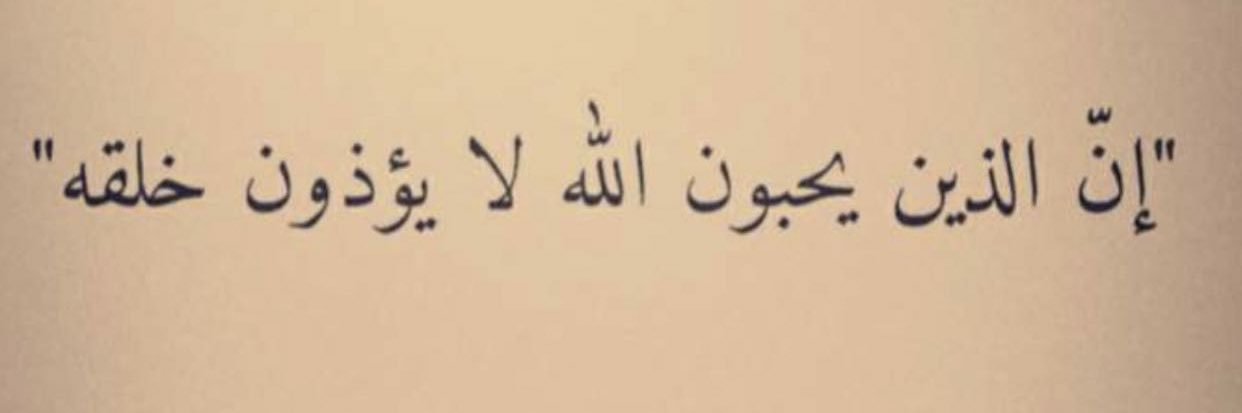 "إنّ الذين يحبون الله لا يؤذون خلقه"